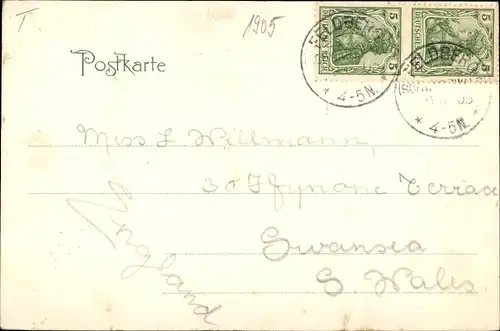 T
1905
Postkarte
5 5
DEUTSCHES REICH DEUTSCHES REICH
FELDBERG
* 4-5N.
FELDBERG
* 4-5N.
Miss L Willmann,
30 Ffynone Terrace
Swansea
S. Wales
England